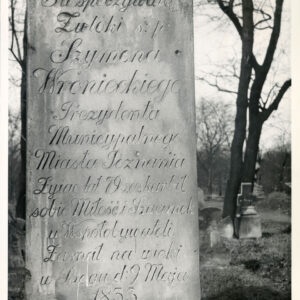 Tu spoczywają
Zwłoki ś.p.
Szymona
Wronieckiego
Prezydenta
Municypalnego
Miasta Poznania
Żyjąc lat 79 zaskarbił
sobie Miłość i Szacunek
u Współobywateli
Zasnął na wieki
w Bogu d. 9 Maja
1855